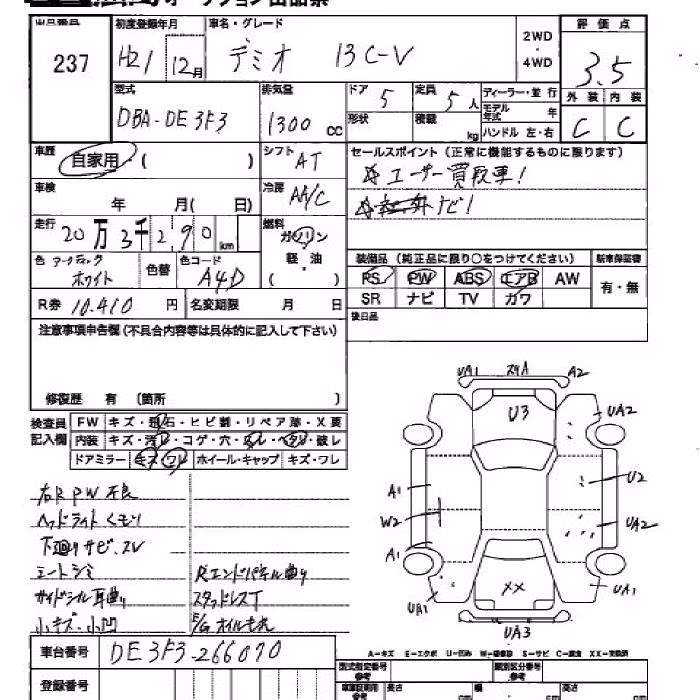 オークション出品票
出品番号 初度登録年月 車名・グレード 2WD・4WD 評価点
237 H21 12月 デミオ 13C-V 3.5
型式 排気量 ドア 5 定員 5人 ディーラー・並行 外装 内装
DBA-DE3F3 1300cc 形状 積載 kg モデル年式 年 C C
ハンドル 左・右
車歴 自家用 ( ) シフト AT セールスポイント (正常に機能するものに限ります)
車検 年 月( 日) 冷房 AA/C ☆ユーザー買取車!
走行 20万3千290km 燃料 ガソリン・軽・油 ( ) ナビ!
色 ホワイト 色替 色コード A4D 装備品 (純正品に限り○をつけてください) 新車保証書
PS PW ABS エアB AW 有・無
R券 10.410円 名変期限 月 日 SR ナビ TV カワ
注意事項申告欄 (不具合内容等は具体的に記入して下さい) 後日品
修復歴 有 〔箇所 〕
検査員記入欄 FW キズ・飛石・ヒビ割・リペア跡・X要
内装 キズ・汚レ・コゲ・穴・スレ・ヘタリ・破レ
ドアミラー キズ・ワレ ホイール・キャップ キズ・ワレ
UA1 スリA A2
U3 UA2
A1 U2
W2 UA2
A1
XX UA1
UA1
UA3
右R PW 不良
ヘッドライトくもり
下廻りサビ、スレ
シートシミ Rエンドパネル曲り
サイドシル耳曲り スタッドレスT
小キズ・小凹 E/G オイルモレ
車台番号 DE3F3-266070
A-キズ E-エクボ U-凹み W-補修跡 S-サビ C-腐食 XX-交換済
登録番号 型式指定番号 参考 類別区分番号 参考
車庫証明用 参考 長さ cm 幅 cm 高さ cm